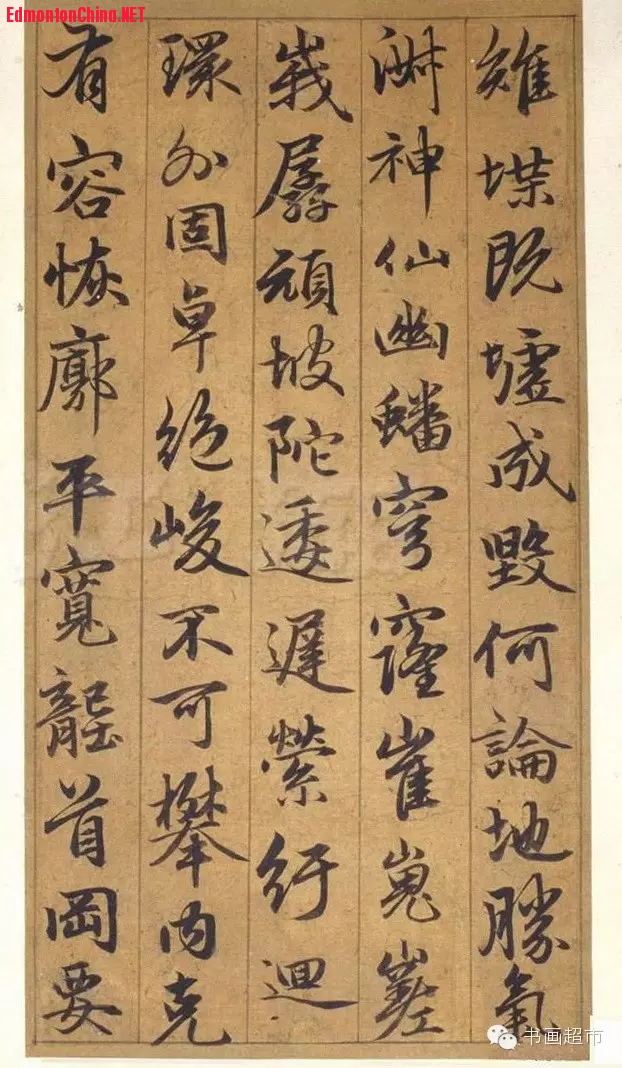 EdmontonChina.NET
雉堞既墟成毀何論地勝氣
淋神仙幽蟠穹窿崔嵬嵳
峩孱頑坡陀逶遲縈紆迴
環外固卓絶峻不可攀内克
有容恢廓平寬龍首岡要
书画超市